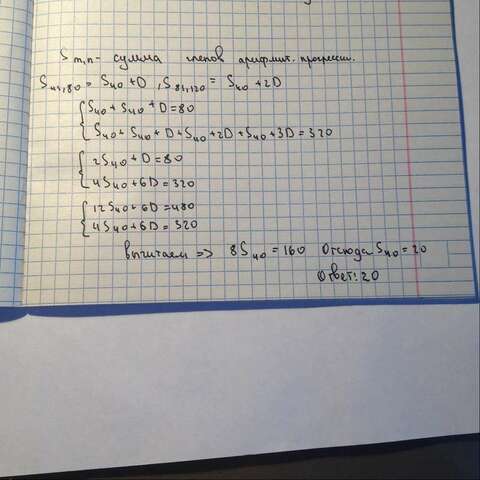 S m,n - сумма членов арифмит. прогрессии.
S 41,80 = S 40 + D, S 81,120 = S 40 + 2D
{ S 40 + S 40 + D = 80
S 40 + S 40 + D + S 40 + 2D + S 40 + 3D = 320
{ 2S 40 + D = 80
4S 40 + 6D = 320
{ 12S 40 + 6D = 480
4S 40 + 6D = 320
вычитаем => 8S 40 = 160 Отсюда S 40 = 20
Ответ: 20